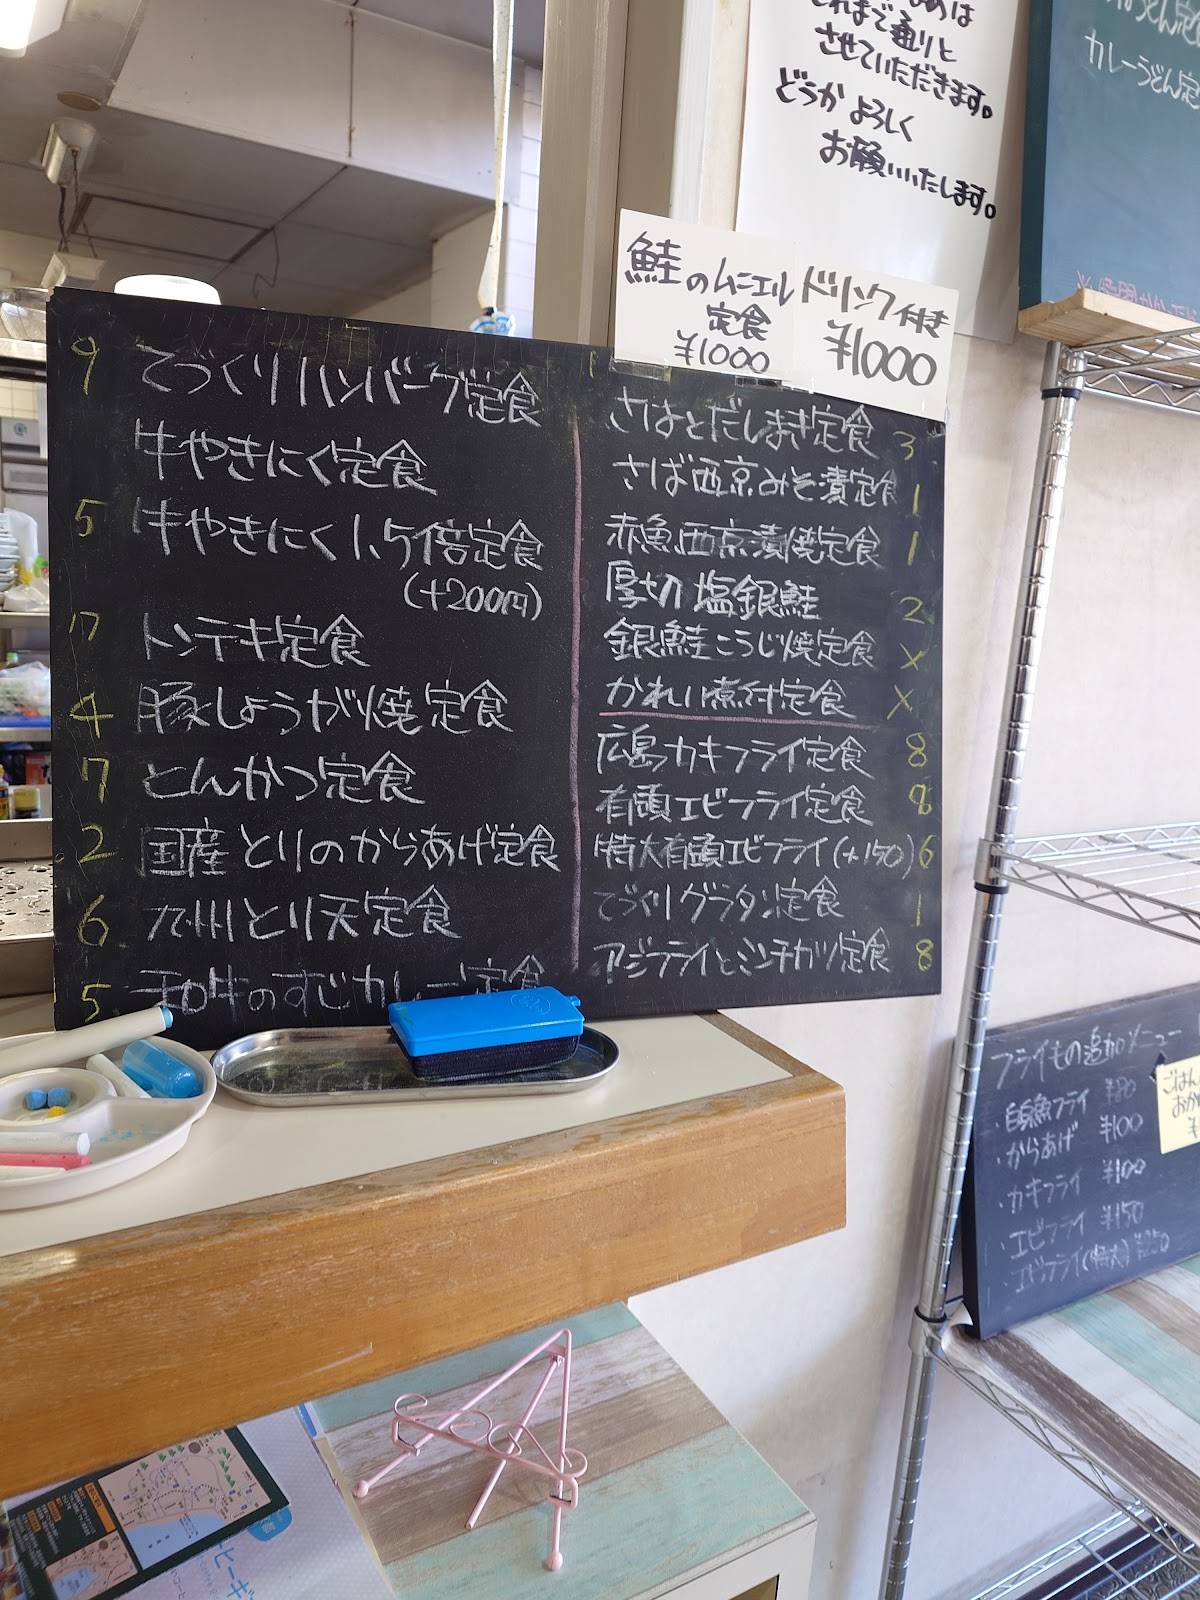 これまで通りと
させていただきます。
どうか よろしく
お願いいたします。
カレーうどん定
鮭のムニエル
定食
¥1000
ドリンク付き
¥1000
9 てづくりハンバーグ定食
牛やきにく定食
5 牛やきにく1.5倍定食
(+200円)
17 トンテキ定食
4 豚しょうが焼定食
7 とんかつ定食
2 国産とりのからあげ定食
6 九州とり天定食
5 和牛のすじカレー定食
さばとだしまき定食 3
さば西京みそ漬定食 1
赤魚西京漬焼定食 1
厚切 塩銀鮭 2
銀鮭こうじ焼定食 ×
かれい煮付定食 ×
広島カキフライ定食 8
有頭エビフライ定食 8
特大有頭エビフライ(+150) 6
てづくりグラタン定食 1
アジフライとミンチカツ定食 8
フライもの追加メニュー
・白身魚フライ ¥80
・からあげ ¥100
・カキフライ ¥100
・エビフライ ¥150
・エビフライ(特大) ¥250
ごはん
おか